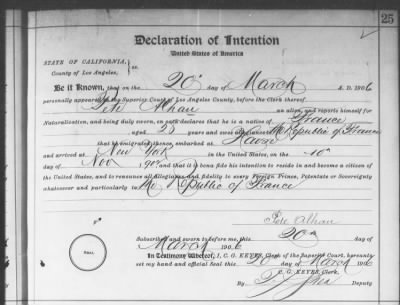 25
Declaration of Intention
United States of America
STATE OF CALIFORNIA,
County of Los Angeles,
ss.
Be it Known, that on the 20" day of March A. D. 1906
personally appeared in the Superior Court of Los Angeles County, before the Clerk thereof
an alien, and reports himself for
Naturalization, and being duly sworn, on oath declares that he is a native of France
aged 28 years and owes allegiance Republic of France
that he emigrated thence, embarked at Havre
and arrived at New York in the United States, on the 10"
day of Nov and that it is bona fide his intention to reside in and become a citizen of
the United States, and to renounce all allegiance and fidelity to every Foreign Prince, Potentate or Sovereignty
whatsoever and particularly to the Republic of France
Subscribed and sworn to before me, this 20th day of
March 1906
In Testimony Whereof, I, C. G. KEYES, Clerk of the Superior Court, hereunto
set my hand and official Seal this 20 day of March 1906
C. G. KEYES, Clerk,
By Deputy